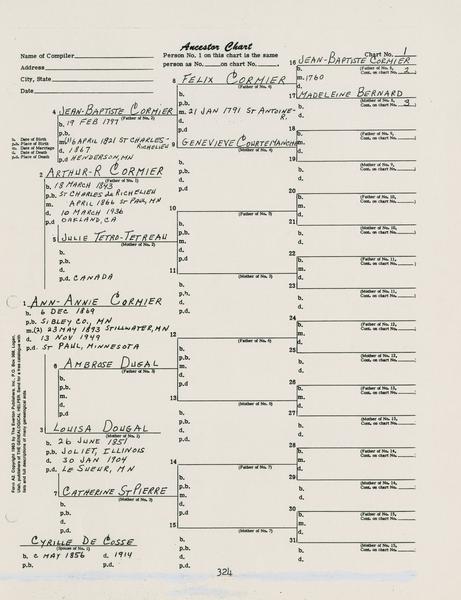 Ancestor Chart
Name of Compiler
Address
City, State
Date
Person No. 1 on this chart is the same
person as No. on chart No.
Chart No. 1
16 JEAN-BAPTISTE CORMIER
(Father of No. 8,
Cont. on chart No. 2)
b.
m. 1760
d.
8 FELIX CORMIER
(Father of No. 4)
b.
m. 21 JAN 1791 ST ANTOINE-R.
d.
17 MADELEINE BERNARD
(Mother of No. 8,
Cont. on chart No. 3)
b.
d.
4 JEAN-BAPTISTE CORMIER
(Father of No. 2)
b. 19 FEB 1797
p.b.
m. (1) 16 APRIL 1821 ST CHARLES-RICHELIEU
d. 1867
p.d HENDERSON, MN
b. Date of Birth
p.b. Place of Birth
m. Date of Marriage
d. Date of Death
p.d. Place of Death
18
(Father of No. 9,
Cont. on chart No. )
b.
m.
d.
9 GENEVIEVE COURTEMANCHE
(Mother of No. 4)
b.
d.
19
(Mother of No. 9,
Cont. on chart No. )
b.
d.
2 ARTHUR-R CORMIER
(Father of No. 1)
b. 18 MARCH 1843
p.b. ST CHARLES de RICHELIEU
m. APRIL 1866 ST PAUL, MN
d. 10 MARCH 1936
p.d OAKLAND, CA
20
(Father of No. 10,
Cont. on chart No. )
b.
m.
d.
10
(Father of No. 5)
b.
m.
d.
21
(Mother of No. 10,
Cont. on chart No. )
b.
d.
5 JULIE TETRO-TETREAU
(Mother of No. 2)
b.
p.b.
d.
p.d. CANADA
22
(Father of No. 11,
Cont. on chart No. )
b.
m.
d.
11
(Mother of No. 5)
b.
d.
23
(Mother of No. 11,
Cont. on chart No. )
b.
d.
1 ANN-ANNIE CORMIER
b. 6 DEC 1869
p.b. SIBLEY CO., MN
m. (2) 23 MAY 1893 STILLWATER, MN
d. 13 NOV 1949
p.d. ST PAUL, MINNESOTA
24
(Father of No. 12,
Cont. on chart No. )
b.
m.
d.
12
(Father of No. 6)
b.
m.
d.
25
(Mother of No. 12,
Cont. on chart No. )
b.
d.
6 AMBROSE DUGAL
(Father of No. 3)
b.
p.b.
m.
d.
p.d
26
(Father of No. 13,
Cont. on chart No. )
b.
m.
d.
13
(Mother of No. 6)
b.
d.
27
(Mother of No. 13,
Cont. on chart No. )
b.
d.
3 LOUISA DOUGAL
(Mother of No. 1)
b. 26 JUNE 1851
p.b. JOLIET, ILLINOIS
d. 30 JAN 1904
p.d. LE SUEUR, MN
28
(Father of No. 14,
Cont. on chart No. )
b.
m.
d.
14
(Father of No. 7)
b.
m.
d.
29
(Mother of No. 14,
Cont. on chart No. )
b.
d.
7 CATHERINE ST PIERRE
(Mother of No. 3)
b.
p.b.
d.
p.d.
30
(Father of No. 15,
Cont. on chart No. )
b.
m.
d.
15
(Mother of No. 7)
b.
d.
31
(Mother of No. 15,
Cont. on chart No. )
b.
d.
CYRILLE DE COSSE
(Spouse of No. 1)
b. c MAY 1856 d. 1914
p.b. p.d.
Form A2. Copyright 1963 by The Everton Publishers, Inc., P.O. Box 368, Logan,
Utah, publishers of THE GENEALOGICAL HELPER. Send for a free catalogue with
lists and full descriptions of many genealogical aids
324